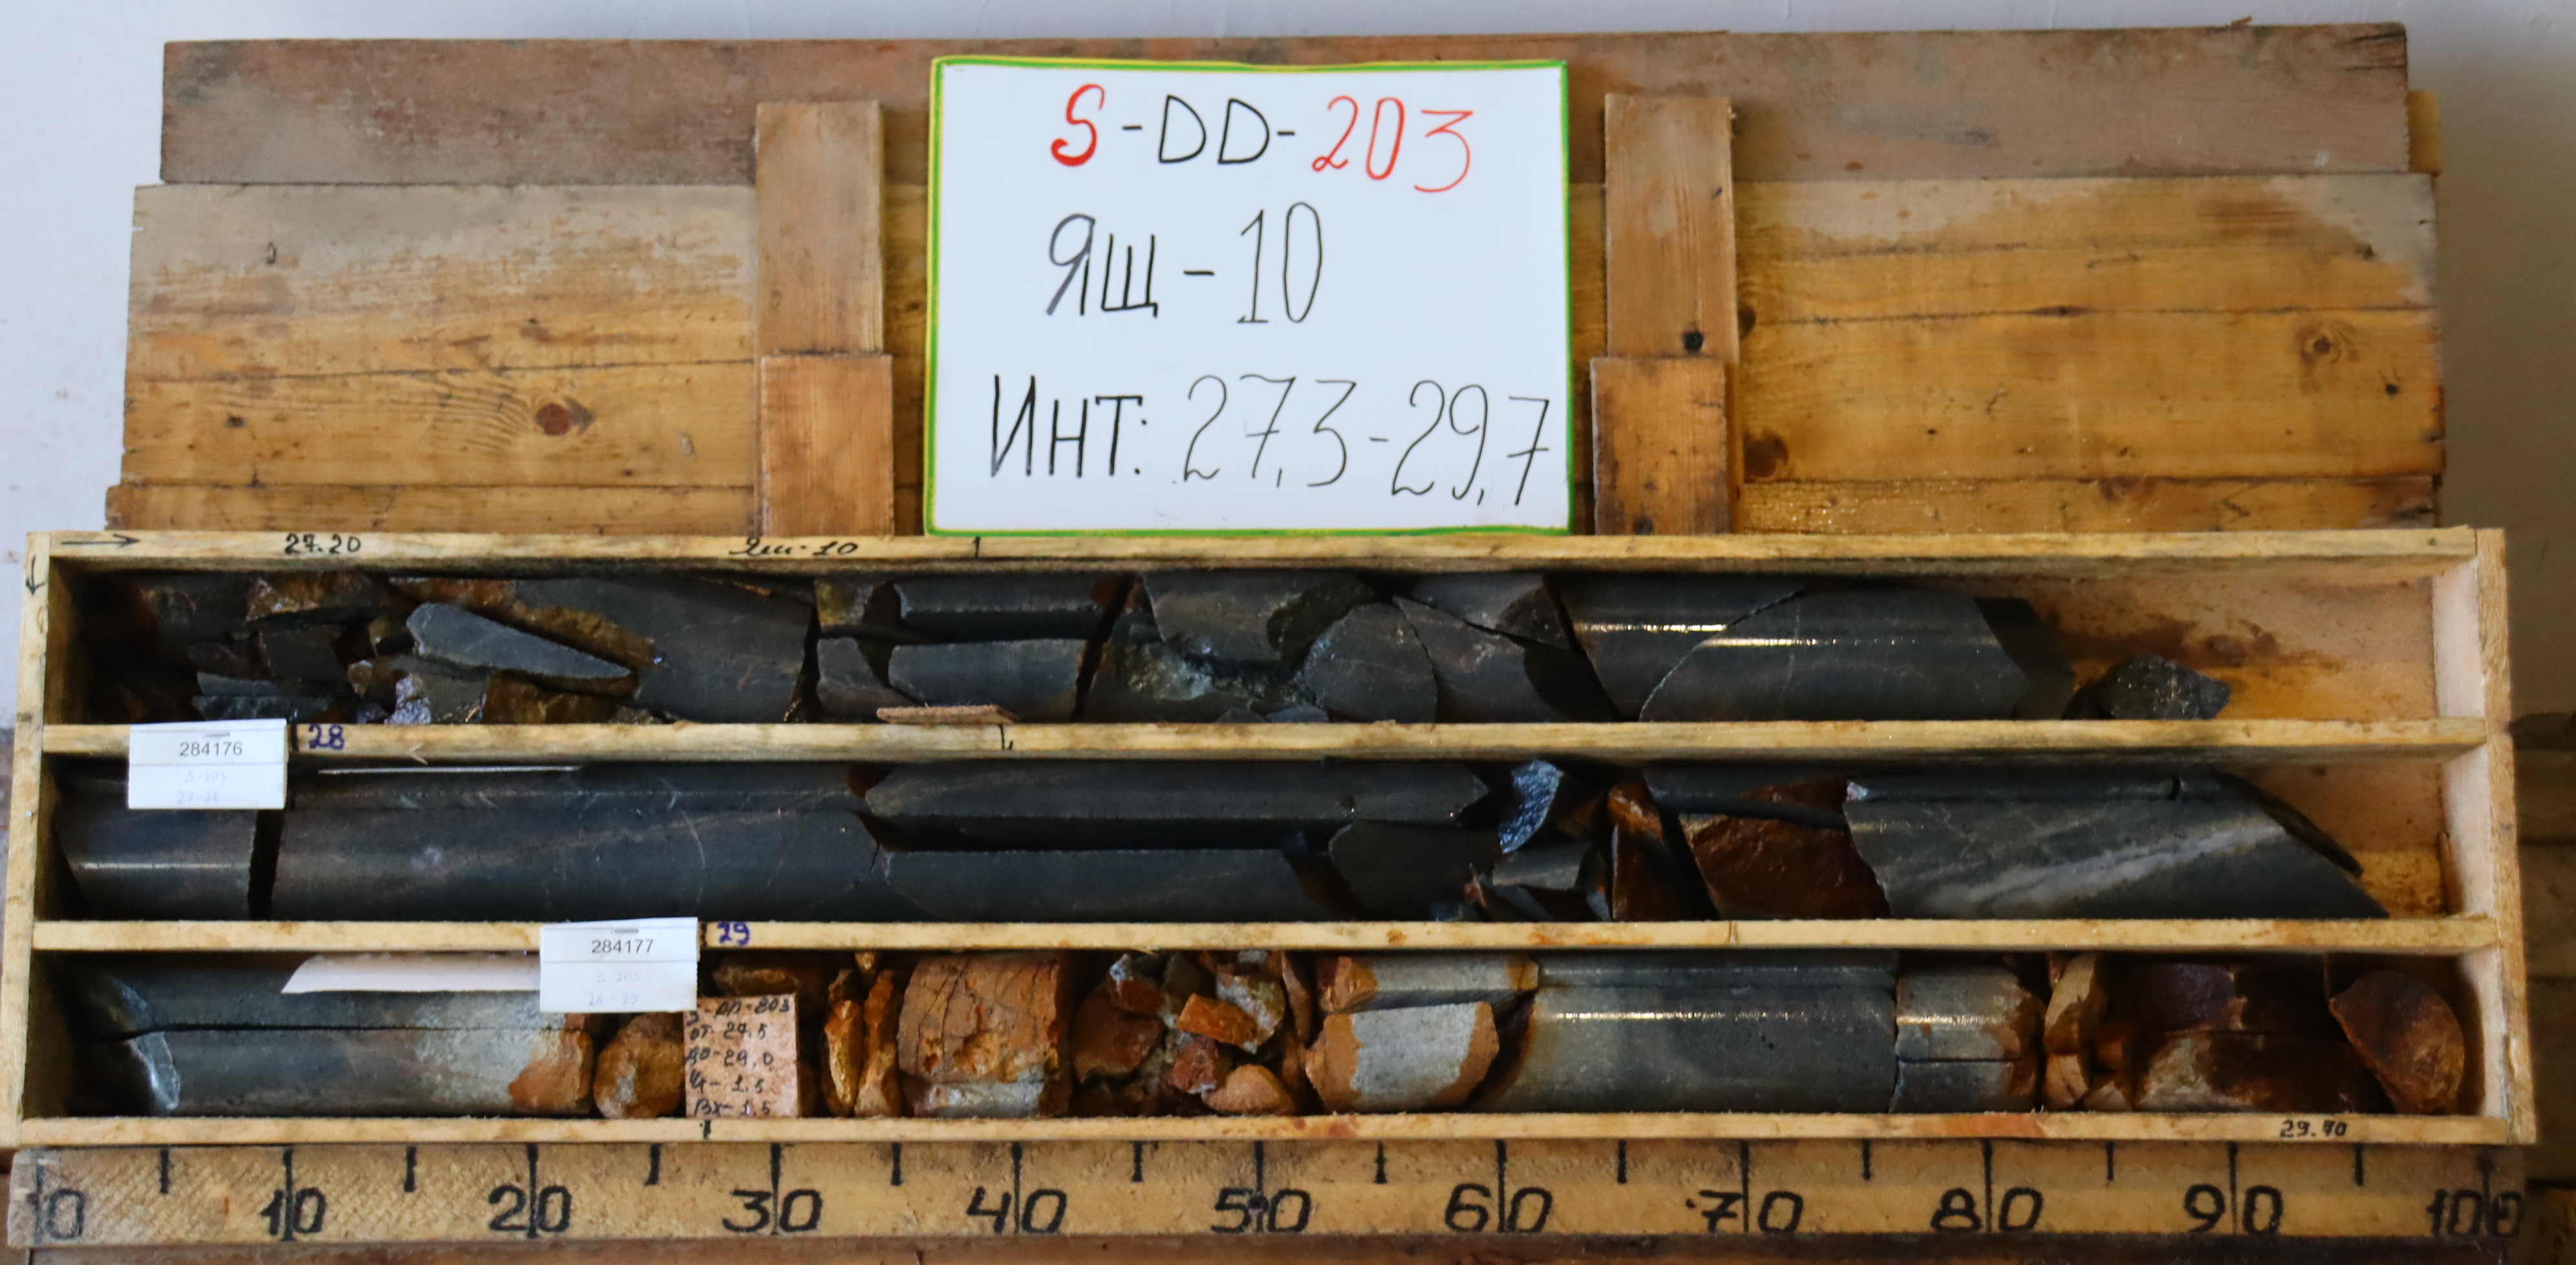 S-DD-203
ЯЩ-10
ИНТ: 27,3-29,7
27.20
Ящ-10
284176
S-203
27-28
28
284177
S-203
28-29
29
S-DD-203
от-27,5
до-29,0
Ч-1.5
Вх-1.5
29.70
0 10 20 30 40 50 60 70 80 90 100